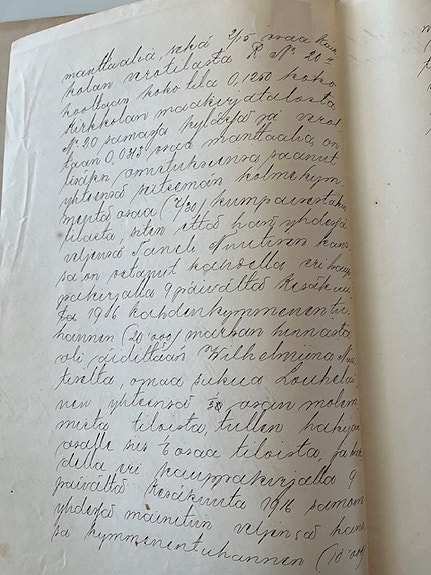 manttaalia, sekä 2/5 osaa Kirk-
kolan verotilasta R No 20 n
kooltaan koko tila 0,1250 koko
Kirkkolan maakirjatalosta
No 20 samassa kylässä ja vero-
taan 0,0313 osaa manttaalia, on
lisäksi omistukseensa saanut
yhteensä seitsemän kolmekym-
mentä osaa (7/30) kumpaisestakin
tilasta, siten että hän yhdessä
veljensä Taneli Nuutisen kans-
sa on ostanut kahdella eri kaup-
pakirjalla 9 päivältä Kesäkuu-
ta 1916 kahdenkymmenentu-
hannen (20'000) markan hinnasta
äidiltään Wilhelmiina Nuu-
tiselta, omaa sukua Louhelai-
nen yhteensä osan molem-
mista tiloista, tullen hakijan
osalle siis osaa tiloista, ja kah-
della eri kauppakirjalla 9
päivältä Kesäkuuta 1916 samoin
yhdessä mainitun veljensä kans-
sa kymmenentuhannen (10'000)